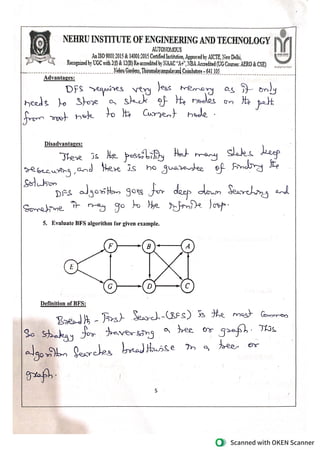 NEHRU INSTITUTE OF ENGINEERING AND TECHNOLOGY
AUTONOMOUS
An ISO 9001:2015 & 14001:2015 Certified Institution, Approved by AICTE, New Delhi,
Recognized by UGC with 2(f) & 12(B) Re-accredited by NAAC "A+", NBA Accredited (UG Courses: AERO & CSE)
Nehru Gardens, Thirumalayampalayam, Coimbatore – 641 105
Advantages:
DFS requires very less memory as it only
needs to store a stack of the nodes on the path
from root note to the current node.
Disadvantages:
There is the possibility that many states keep
reoccuring, and there is no guarantee of finding the
Solution
DFS algorithm goes for deep down Searching and
Sometime it may go to the infinite loop.
5. Evaluate BFS algorithm for given example.
F B A
E
G D C
Definition of BFS:
Breadth-First Search-(BFS) is the most common
So strategy for traversing a tree or graph. This
algorithm Searches breadthwise in a tree or
graph.
5
Scanned with OKEN Scanner